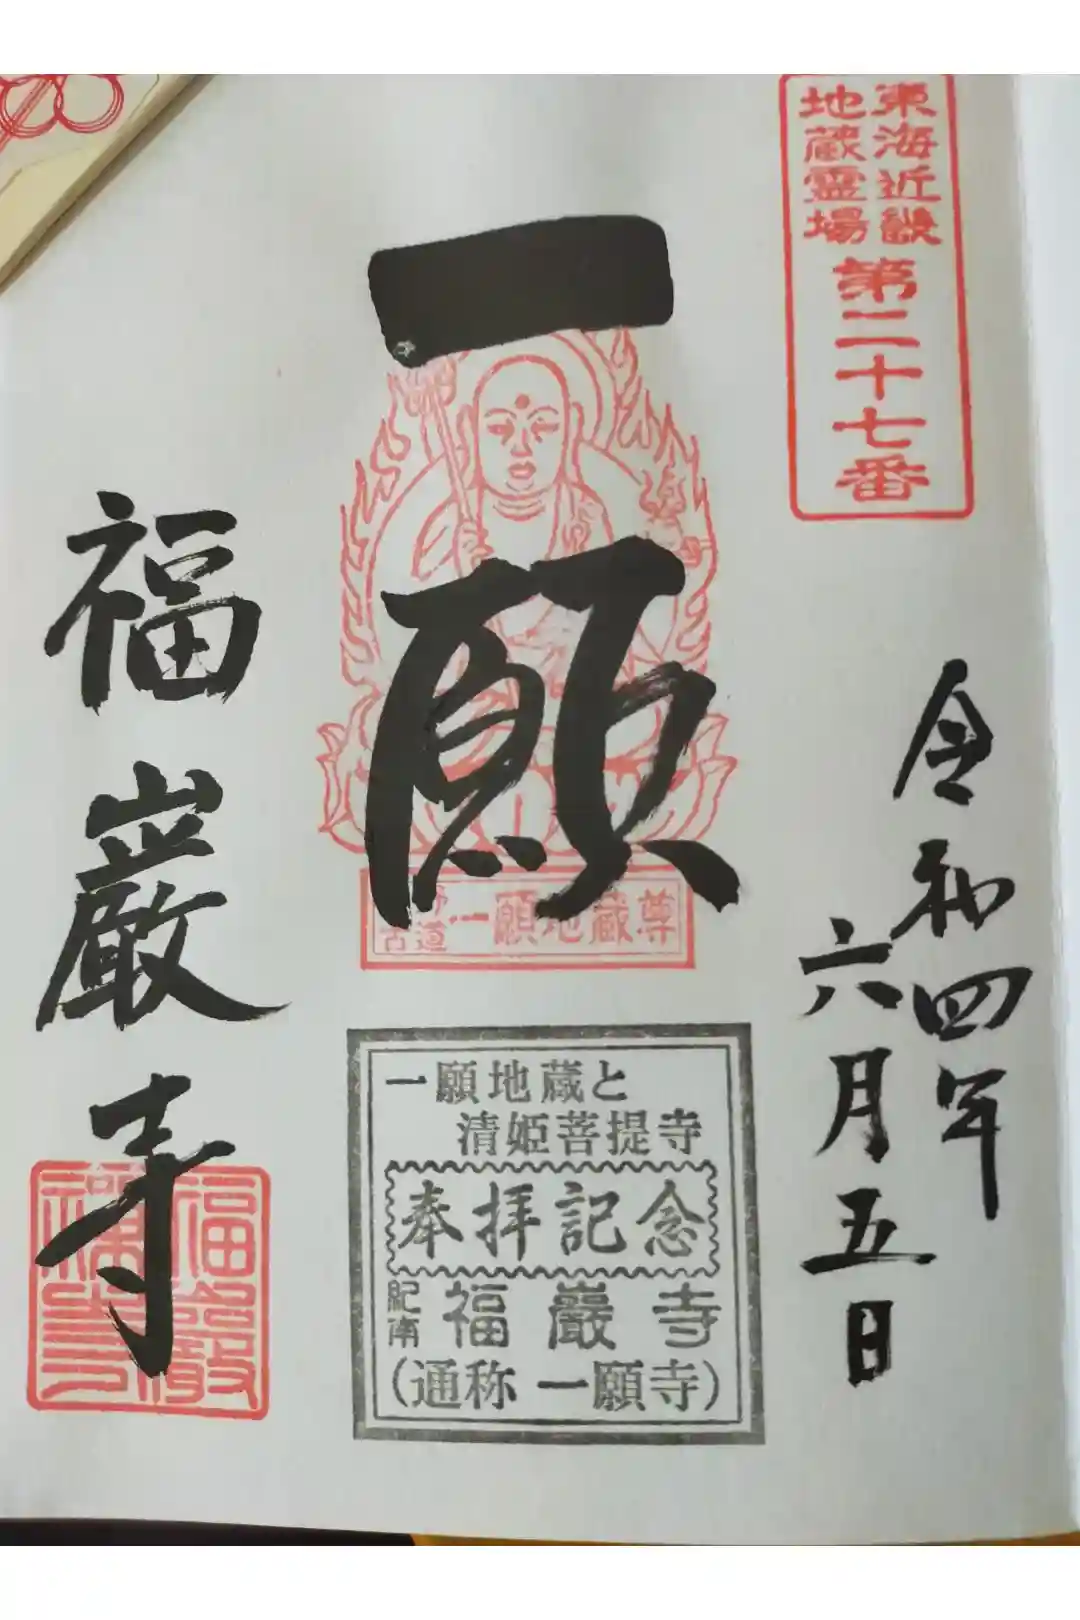 東海近畿
地蔵霊場
第二十七番
令和四年
六月五日
一願
古道 一願地蔵尊
福巖寺
福巖
禅寺
一願地蔵と
清姫菩提寺
奉拝記念
紀南 福巖寺
(通称 一願寺)